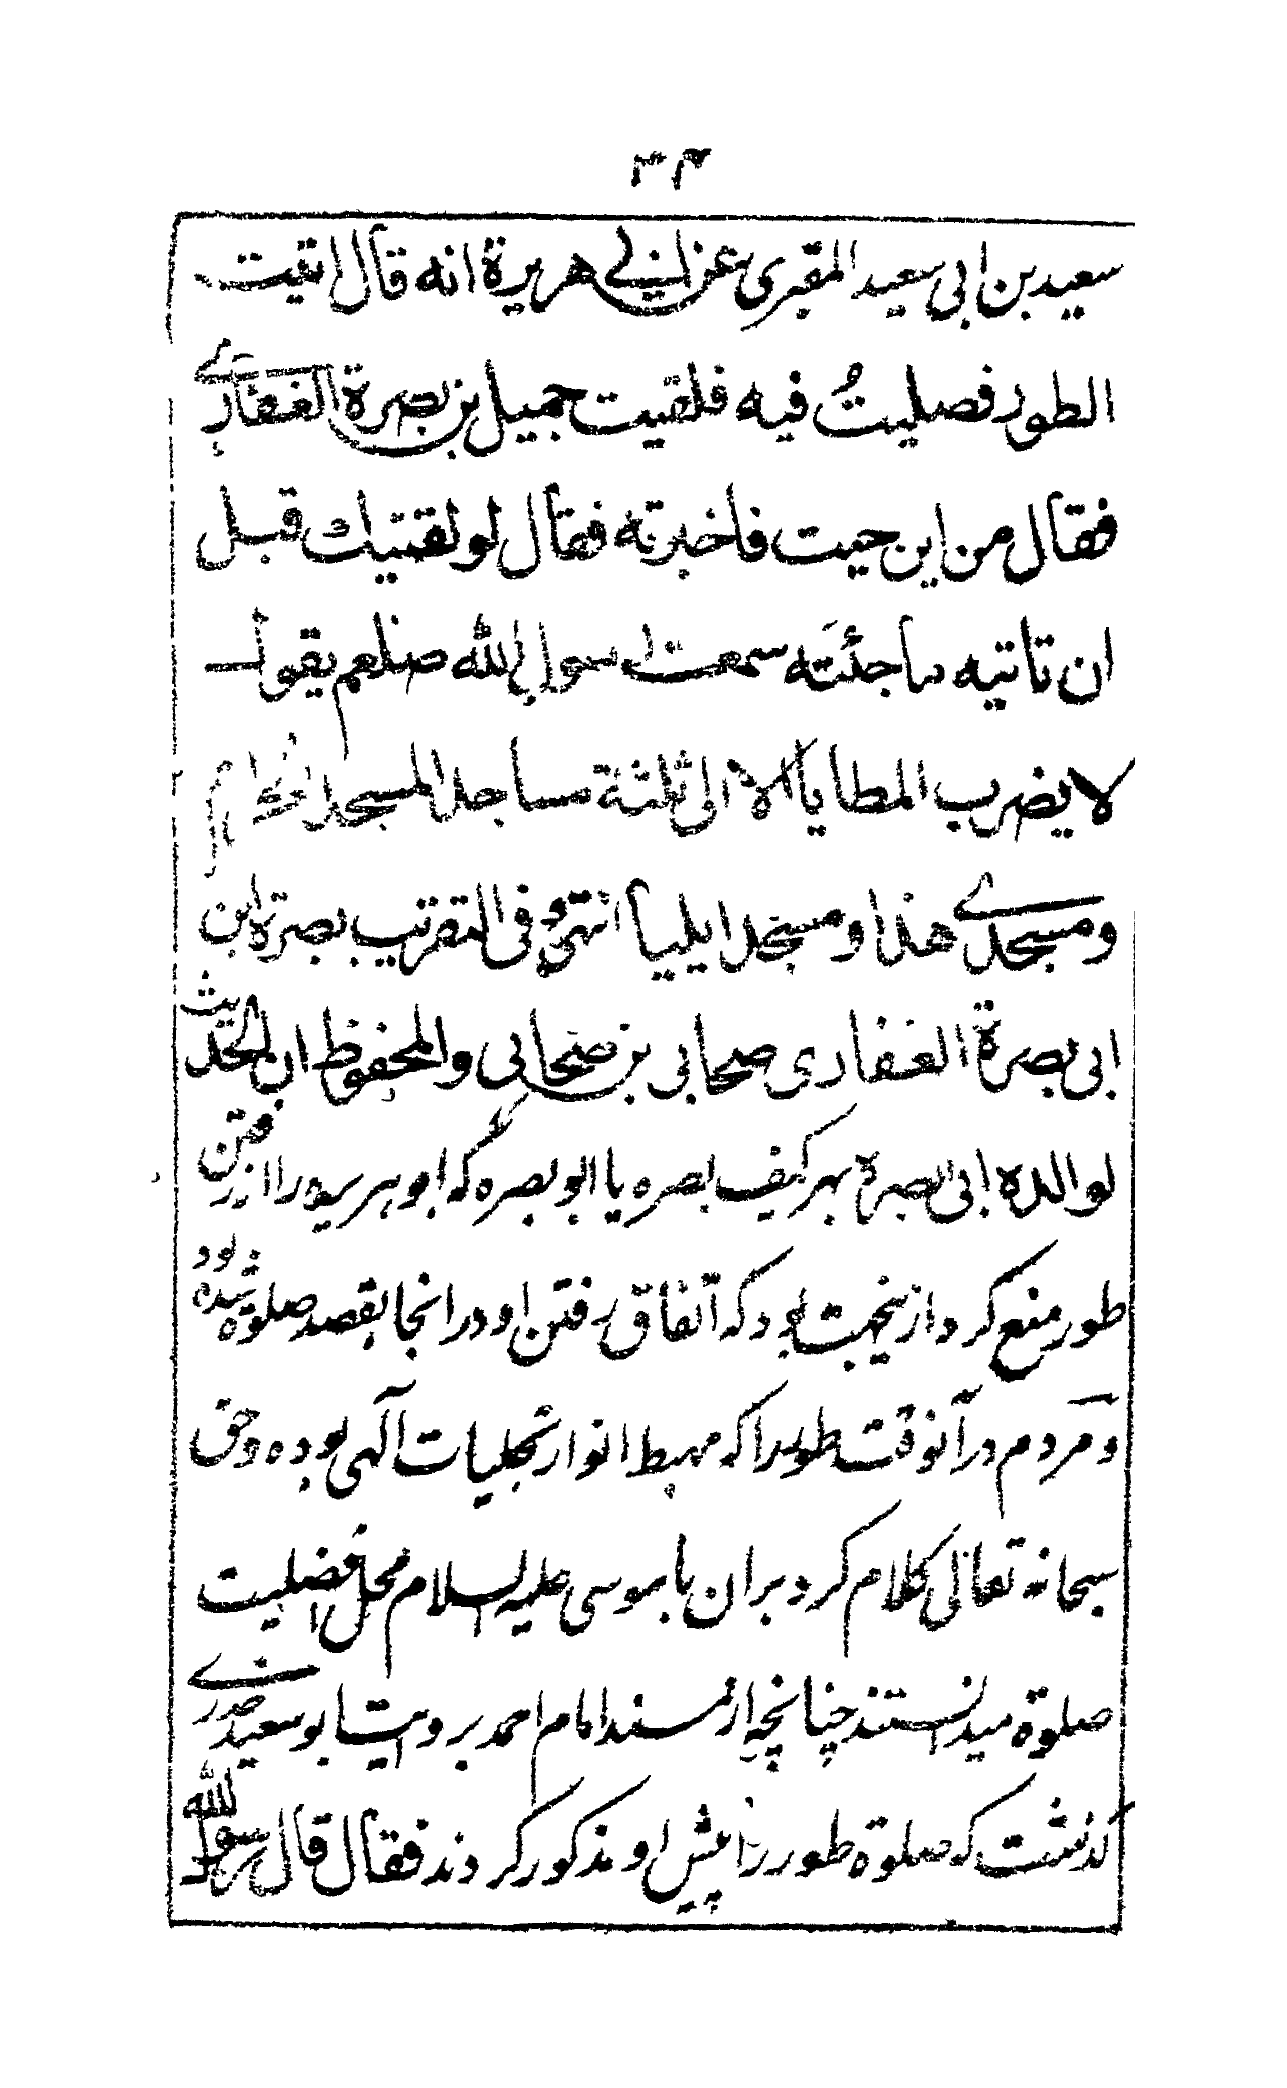 ۳۴
سعيد بن ابي سعيد المقبري عن ابي هريرة انه قال اتيت
الطور فصليتُ فيه فلقيت جميل بن بصرة الغفاري
فقال من اين جيت فاخبرته فقال لو لقيتك قبل
ان تاتيه ما جئته سمعت رسول الله صلعم يقول
لا يضرب المطايا الا الى ثلثة مساجد المسجد الحرام
و مسجدي هذا و مسجد ايليا انتهى و في التقريب بصرة ابن
ابي بصرة الغفاري صحابي بن صحابي والمحفوظ ان الحديث
لوالده ابي بصرة بهر كيف بصره يا ابو بصره كه ابو هريره را از رفتن
طور منع كرد ازينجهت بود كه اتفاق رفتن او در انجا بقصد صلوة شده بود
و مردم در آنوقت طور را كه مهبط انوار تجليات آلهى بوده و حق
سبحانه تعالى كلام كرد بران با موسى عليه السلام محل افضليت
صلوة ميدانستند چنانچه از مسند امام احمد بروايت ابو سعيد خدري
گذشت كه صلوة طور را پيش او مذكور كردند فقال قال رسول الله